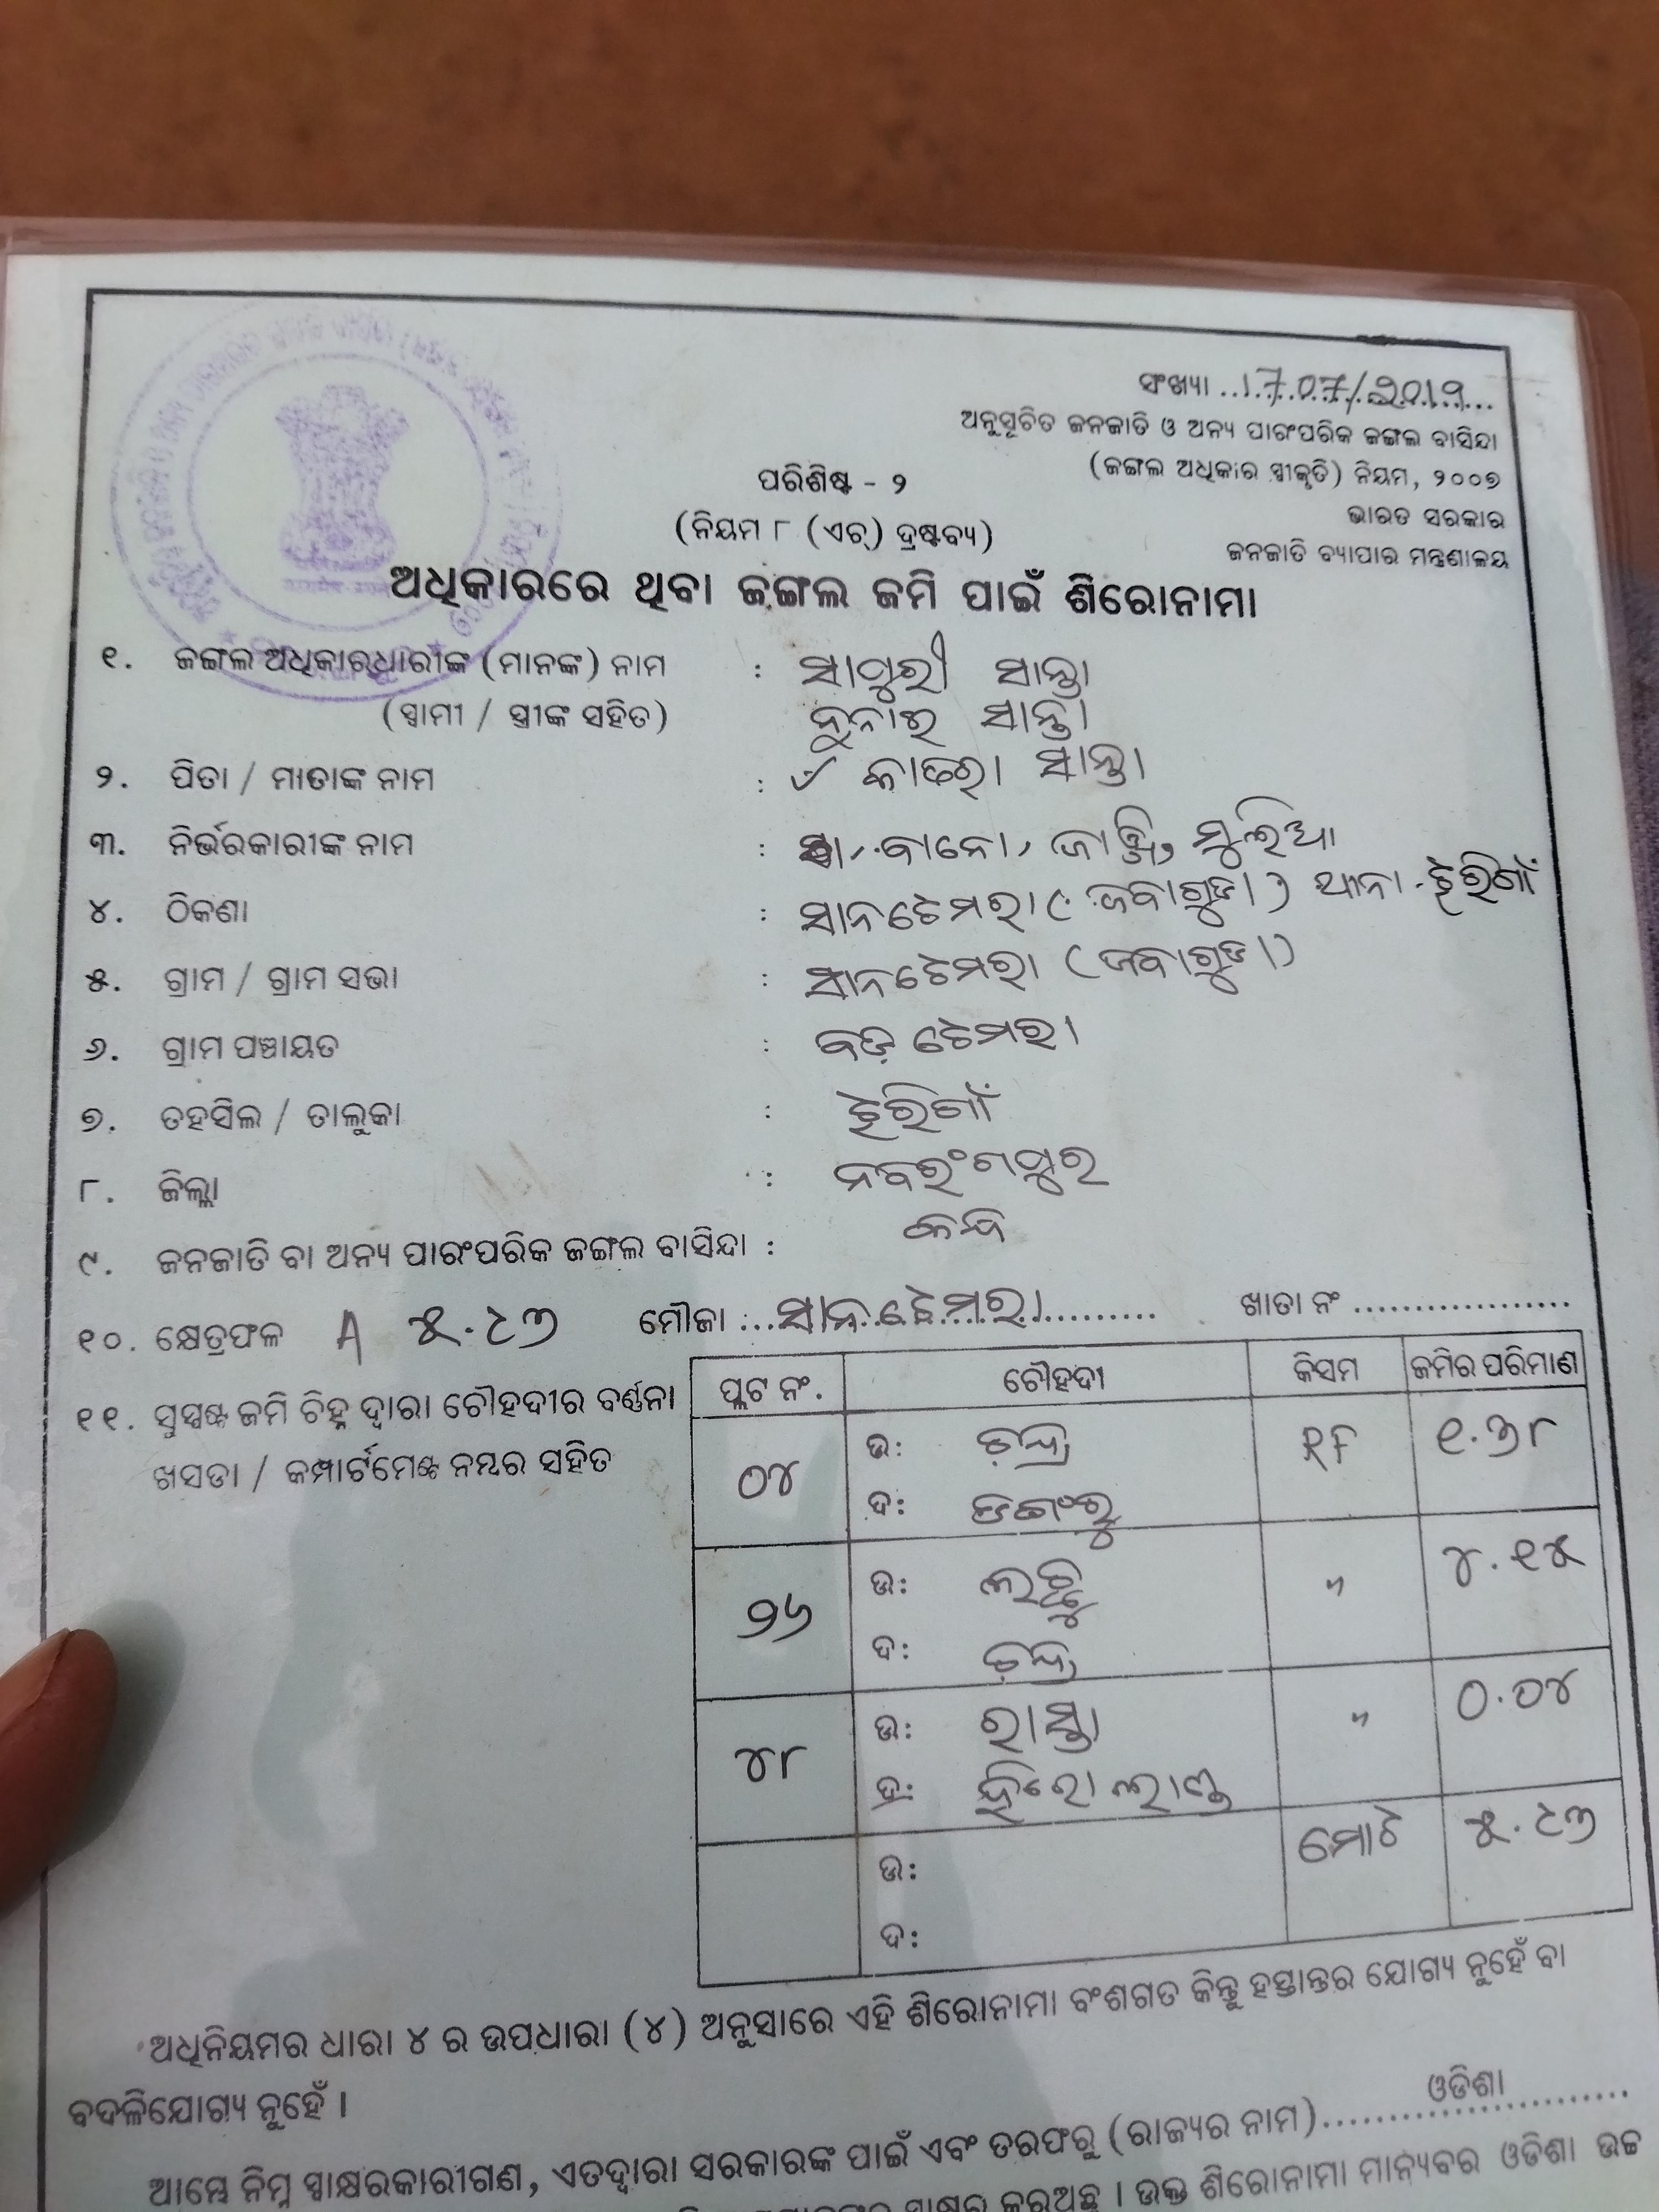 ସଂଖ୍ୟା ..17.07/2019...
ଅନୁସୂଚିତ ଜନଜାତି ଓ ଅନ୍ୟ ପାରଂପରିକ ଜଙ୍ଗଲ ବାସିନ୍ଦା
(ଜଙ୍ଗଲ ଅଧିକାର ସ୍ଵୀକୃତି) ନିୟମ, ୨୦୦୭
ପରିଶିଷ୍ଟ - ୨
ଭାରତ ସରକାର
(ନିୟମ ୮ (ଏଚ୍) ଦ୍ରଷ୍ଟବ୍ୟ)
ଜନଜାତି ବ୍ୟାପାର ମନ୍ତ୍ରଣାଳୟ
ଅଧିକାରରେ ଥିବା ଜଙ୍ଗଲ ଜମି ପାଇଁ ଶିରୋନାମା
୧. ଜଙ୍ଗଲ ଅଧିକାରଧାରୀଙ୍କ (ମାନଙ୍କ) ନାମ : ସାପୁରୀ ସାନ୍ତା
(ସ୍ଵାମୀ / ସ୍ତ୍ରୀଙ୍କ ସହିତ) ସାନ୍ତା
୨. ପିତା / ମାତାଙ୍କ ନାମ : ସାନ୍ତା
୩. ନିର୍ଭରକାରୀଙ୍କ ନାମ : ମୁଲିଆ
୪. ଠିକଣା : ସାନଟେମରା ( ଜବାଗୁଡା ) ଥାନା - ଝରିଗାଁ
୫. ଗ୍ରାମ / ଗ୍ରାମ ସଭା : ସାନଟେମରା (ଜବାଗୁଡା)
୬. ଗ୍ରାମ ପଞ୍ଚାୟତ : ବଡ଼ ଟେମରା
୭. ତହସିଲ / ତାଲୁକା : ଝରିଗାଁ
୮. ଜିଲ୍ଲା : ନବରଂଗପୁର
୯. ଜନଜାତି ବା ଅନ୍ୟ ପାରଂପରିକ ଜଙ୍ଗଲ ବାସିନ୍ଦା : କନ୍ଧ
୧୦. କ୍ଷେତ୍ରଫଳ A ୫.୯୭ ମୌଜା : ...ସାନଟେମରା......... ଖାତା ନଂ ..................
୧୧. ସୁସ୍ପଷ୍ଟ ଜମି ଚିହ୍ନ ଦ୍ଵାରା ଚୌହଦୀର ବର୍ଣ୍ଣନା
ଖସଡା / କମ୍ପାର୍ଟମେଣ୍ଟ ନମ୍ବର ସହିତ
ପ୍ଲଟ ନଂ. ଚୌହଦୀ କିସମ ଜମିର ପରିମାଣ
୦୪ ଉ: ଚନ୍ଦ୍ର RF ୧.୭୮
ଦ: ଡଗଂରୁ
୨୬ ଉ: ଲଛୁ " ୪.୧୫
ଦ: ଚନ୍ଦ୍ର
୪୮ ଉ: ରାସ୍ତା " ୦.୦୪
ଦ: ହିରୋ
ଉ: ମୋଟ ୫.୯୭
ଦ:
ଅଧିନିୟମର ଧାରା ୪ ର ଉପଧାରା (୪) ଅନୁସାରେ ଏହି ଶିରୋନାମା ବଂଶଗତ କିନ୍ତୁ ହସ୍ତାନ୍ତର ଯୋଗ୍ୟ ନୁହେଁ ବା
ବଦଳିଯୋଗ୍ୟ ନୁହେଁ ।
ଆମ୍ଭେ ନିମ୍ନ ସ୍ଵାକ୍ଷରକାରୀଗଣ, ଏତଦ୍ଵାରା ସରକାରଙ୍କ ପାଇଁ ଏବଂ ତରଫରୁ (ରାଜ୍ୟର ନାମ)..........ଓଡିଶା..........
ସ୍ଵାକ୍ଷର କରୁଅଛୁ । ଉକ୍ତ ଶିରୋନାମା ମାନ୍ୟବର ଓଡିଶା ଉଚ୍ଚ